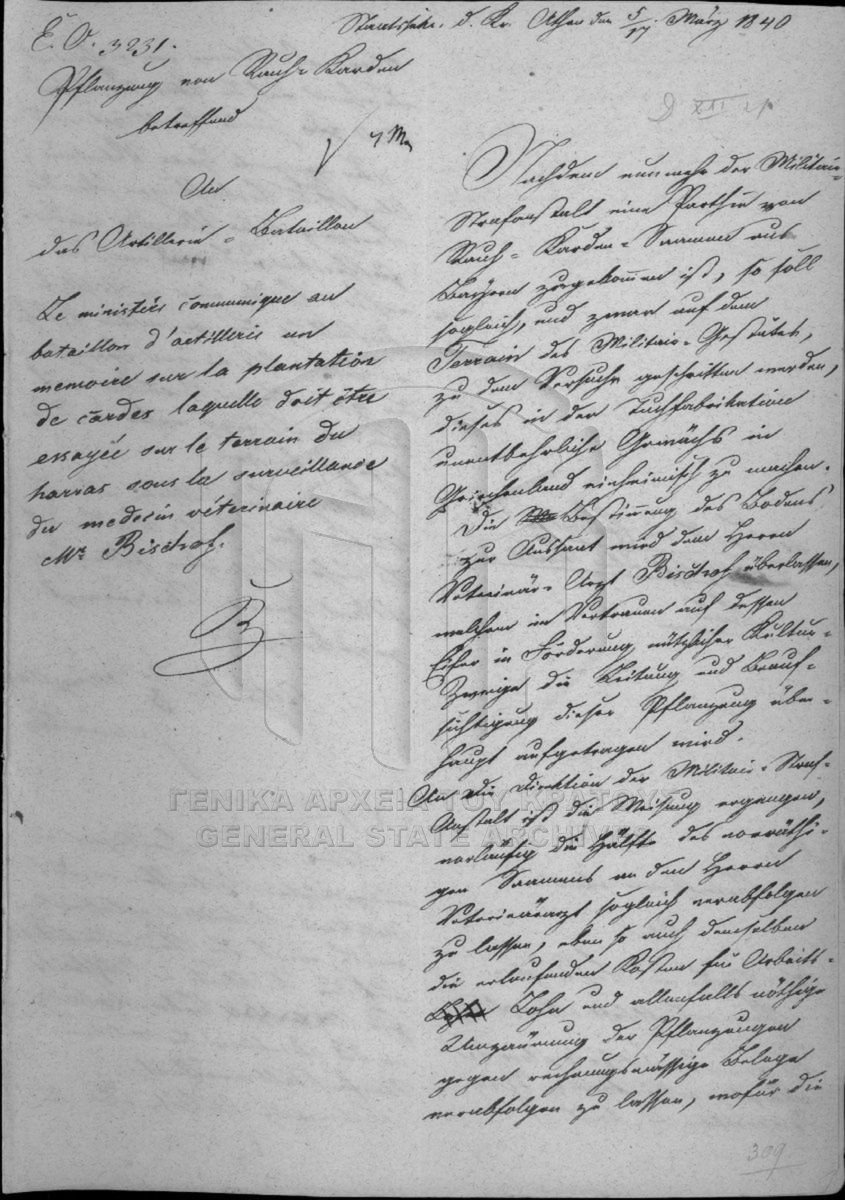 E. O. 3231.
Pflanzung von Rauh-Karden
betreffend
An
das Artillerie-Bataillon
Le ministère communique au
bataillon d'artillerie un
memoire sur la plantation
de cardes laquelle doit être
essayée sur le terrain du
harras sous la surveillance
du medecin véterinaire
Mr Bischof.
Staatssekr. d. Kr. Athen den 5/17 März 1840
D XII
Nachdem nunmehr der Militair-
Strafanstalt eine Parthie von
Rauh-Karden-Saamen aus
Bayern zugekommen ist, so soll
sogleich, und zwar auf dem
Terrain des Militair-Gestütes,
zu dem Versuche geschritten werden,
dieses in der Tuchfabrikation
unentbehrliche Gewächs in
Griechenland einheimisch zu machen.
Die Bestimmung des Bodens
zur Aussaat wird dem Herrn
Veterinär-Arzt Bischof überlassen,
welchem im Vertrauen auf dessen
Eifer in Förderung nützlicher Kultur-
Zweige die Leitung und Beauf-
sichtigung dieser Pflanzung über-
haupt aufgetragen wird.
An die Direktion der Militair-Straf-
Anstalt ist die Weisung ergangen,
vorläufig die Hälfte des vorräthi-
gen Saamens an den Herrn
Veterinärarzt sogleich verabfolgen
zu lassen, eben so auch demselben
die erlaufenden Kosten für Arbeits-
Lohn und allenfalls nöthige
Umzäunung der Pflanzungen
gegen rechnungsmässige Belege
verabfolgen zu lassen, wofür die
309
ΓΕΝΙΚΑ ΑΡΧΕΙΑ ΤΟΥ ΚΡΑΤΟΥΣ
GENERAL STATE ARCHIVES